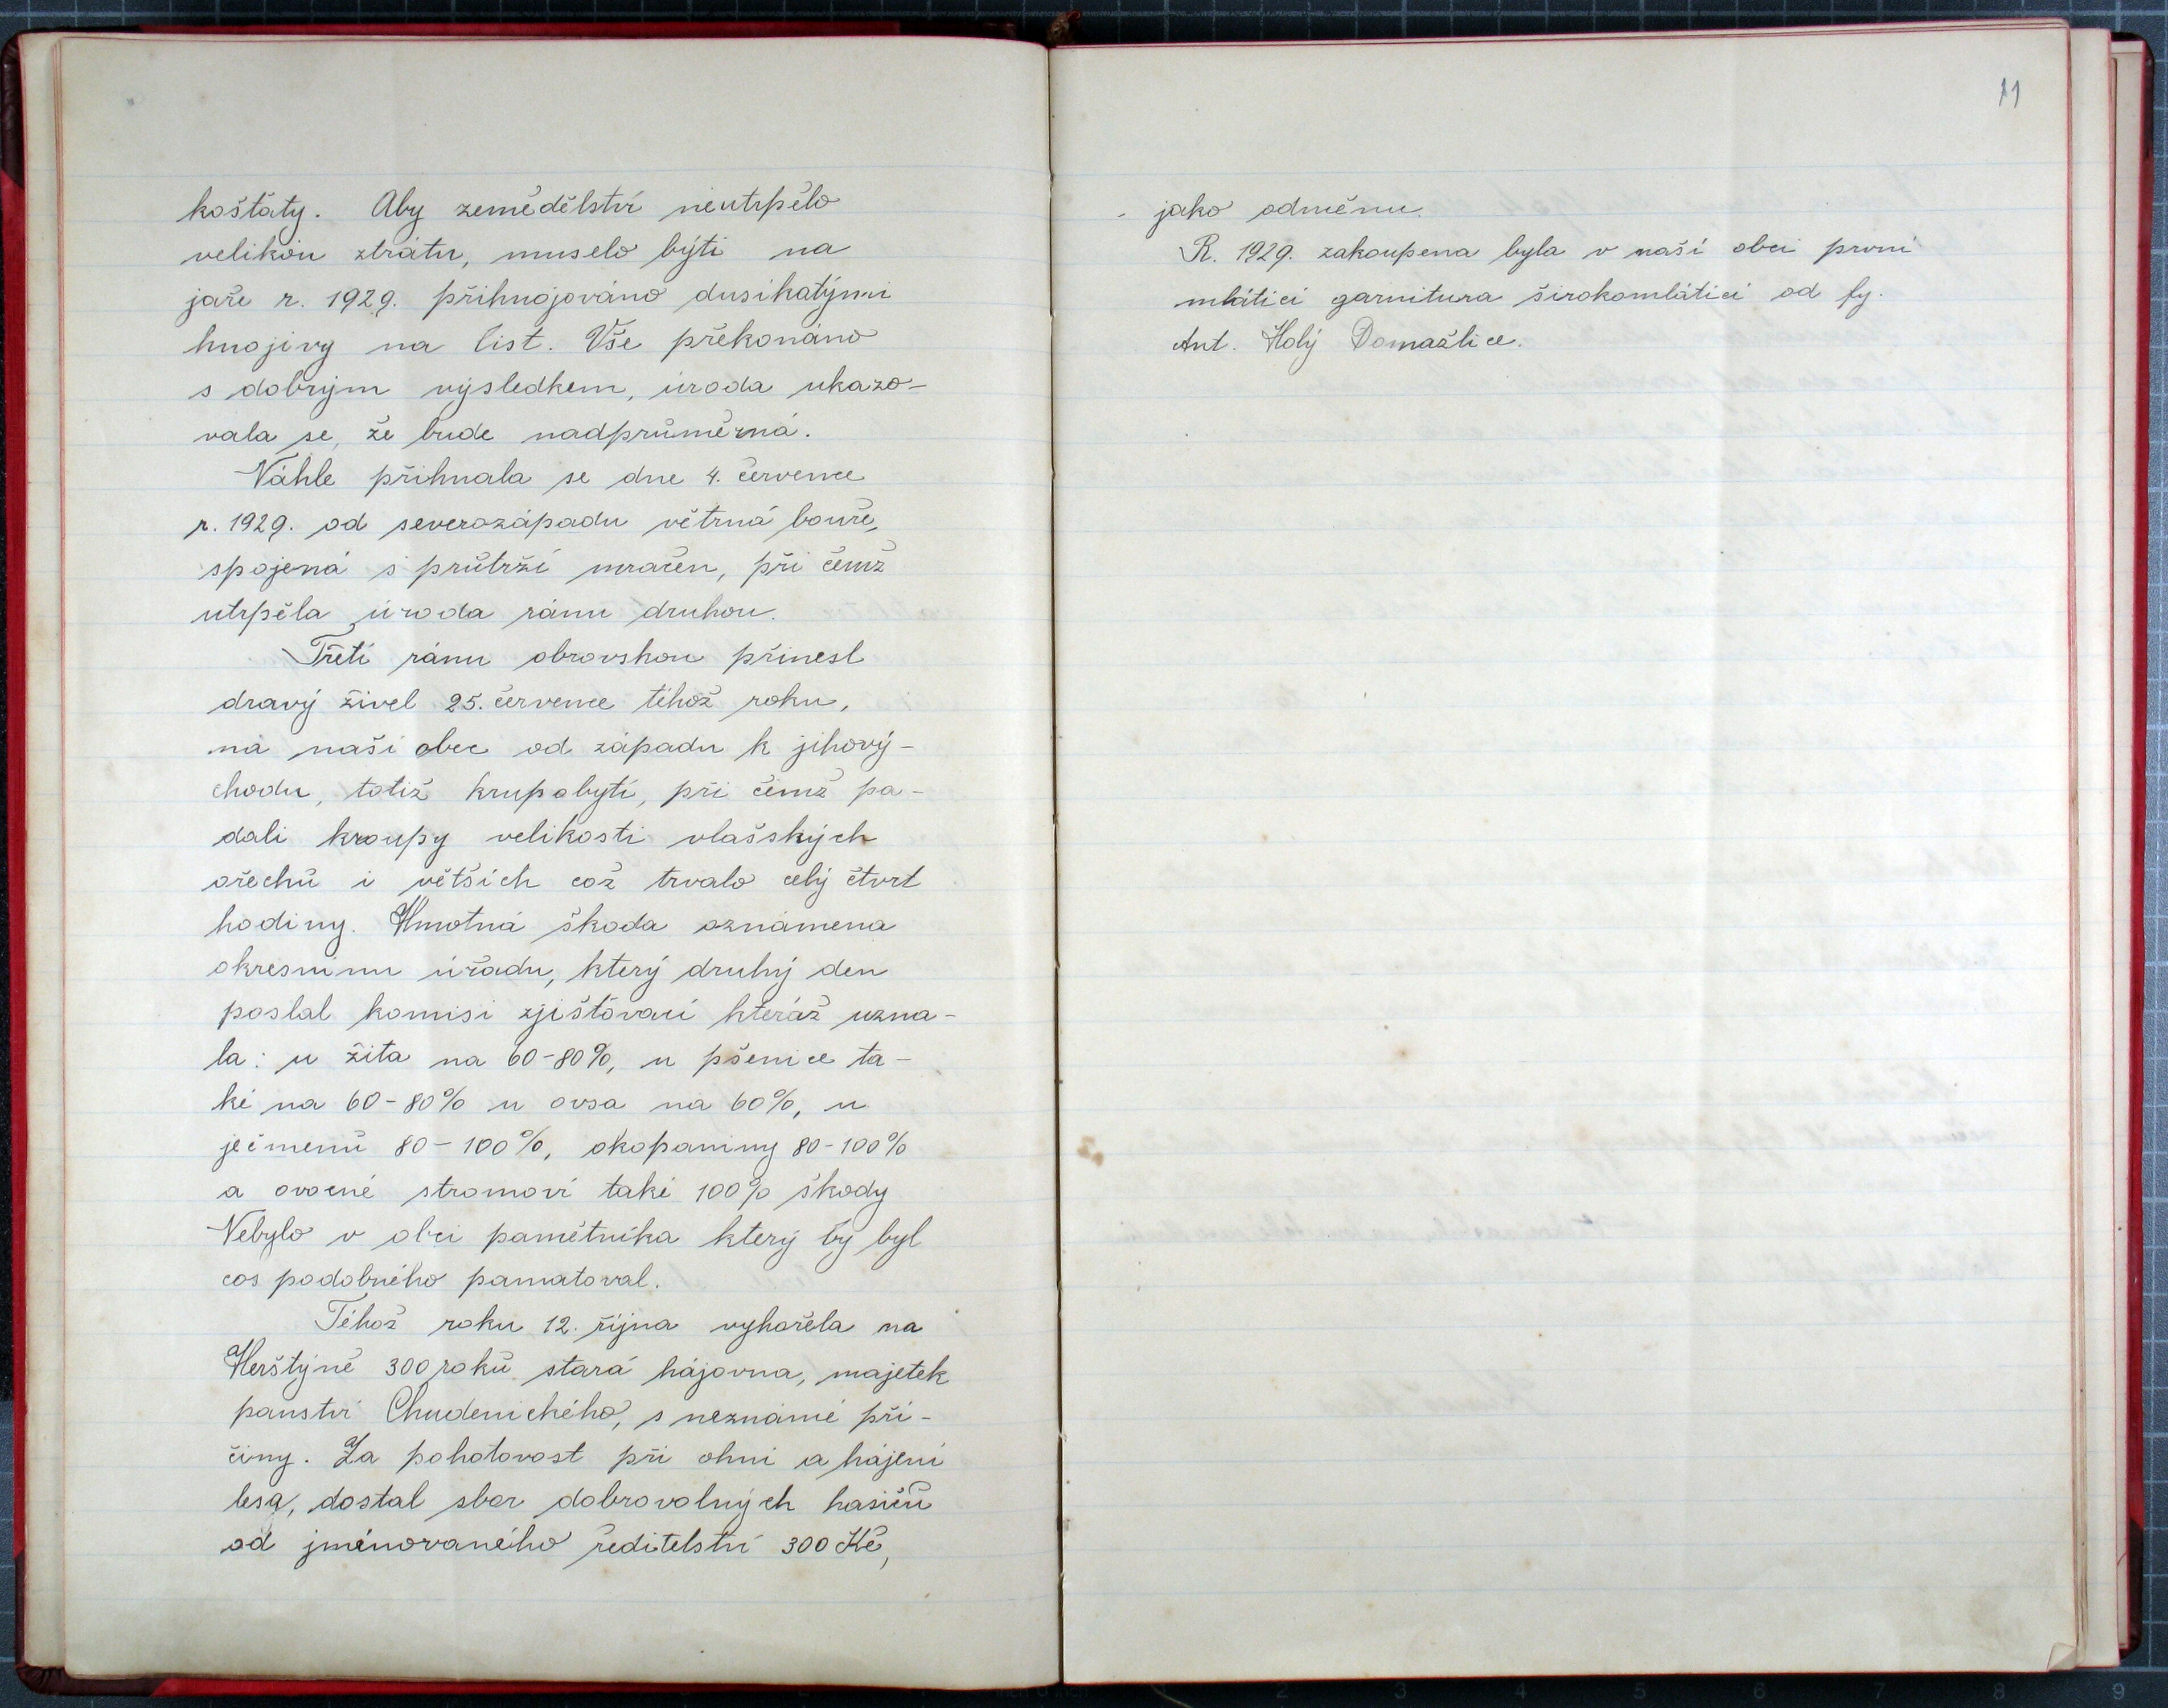 košťáty. Aby zemědělství neutrpělo
velikou ztrátu, muselo býti na
jaře r. 1929. přihnojováno dusíkatými
hnojivy na list. Vše překonáno
s dobrým výsledkem, úroda ukazo-
vala se, že bude nadprůměrná.
Náhle přihnala se dne 4. července
r. 1929. od severozápadu větrná bouře,
spojená s průtrží mračen, při čemž
utrpěla úroda ránu druhou.
Třetí ránu obrovskou přinesl
dravý živel 25. července téhož roku,
na naši obec od západu k jihový-
chodu, totiž krupobytí, při čemž pa-
dali kroupy velikosti vlašských
ořechů i větších což trvalo celý čtvrt
hodiny. Hmotná škoda oznámena
okresnímu úřadu, který druhý den
poslal komisi zjišťovací kteráž uzna-
la: u žita na 60-80%, u pšenice ta-
ké na 60-80% u ovsa na 60%, u
ječmenů 80-100%, okopaniny 80-100%
a ovocné stromoví také 100% škody
Nebylo v obci pamětníka který by byl
cos podobného pamatoval.
Téhož roku 12. října vyhořela na
Herštýně 300 roků stará hájovna, majetek
panství Chudenického, s neznámé pří-
činy. Za pohotovost při ohni a hájení
lesa, dostal sbor dobrovolných hasičů
od jmenovaného ředitelství 300 Kč,
11
jako odměnu.
R. 1929. zakoupena byla v naší obci první
mlátící garnitura širokomlátící od fy.
Ant. Holý Domažlice.